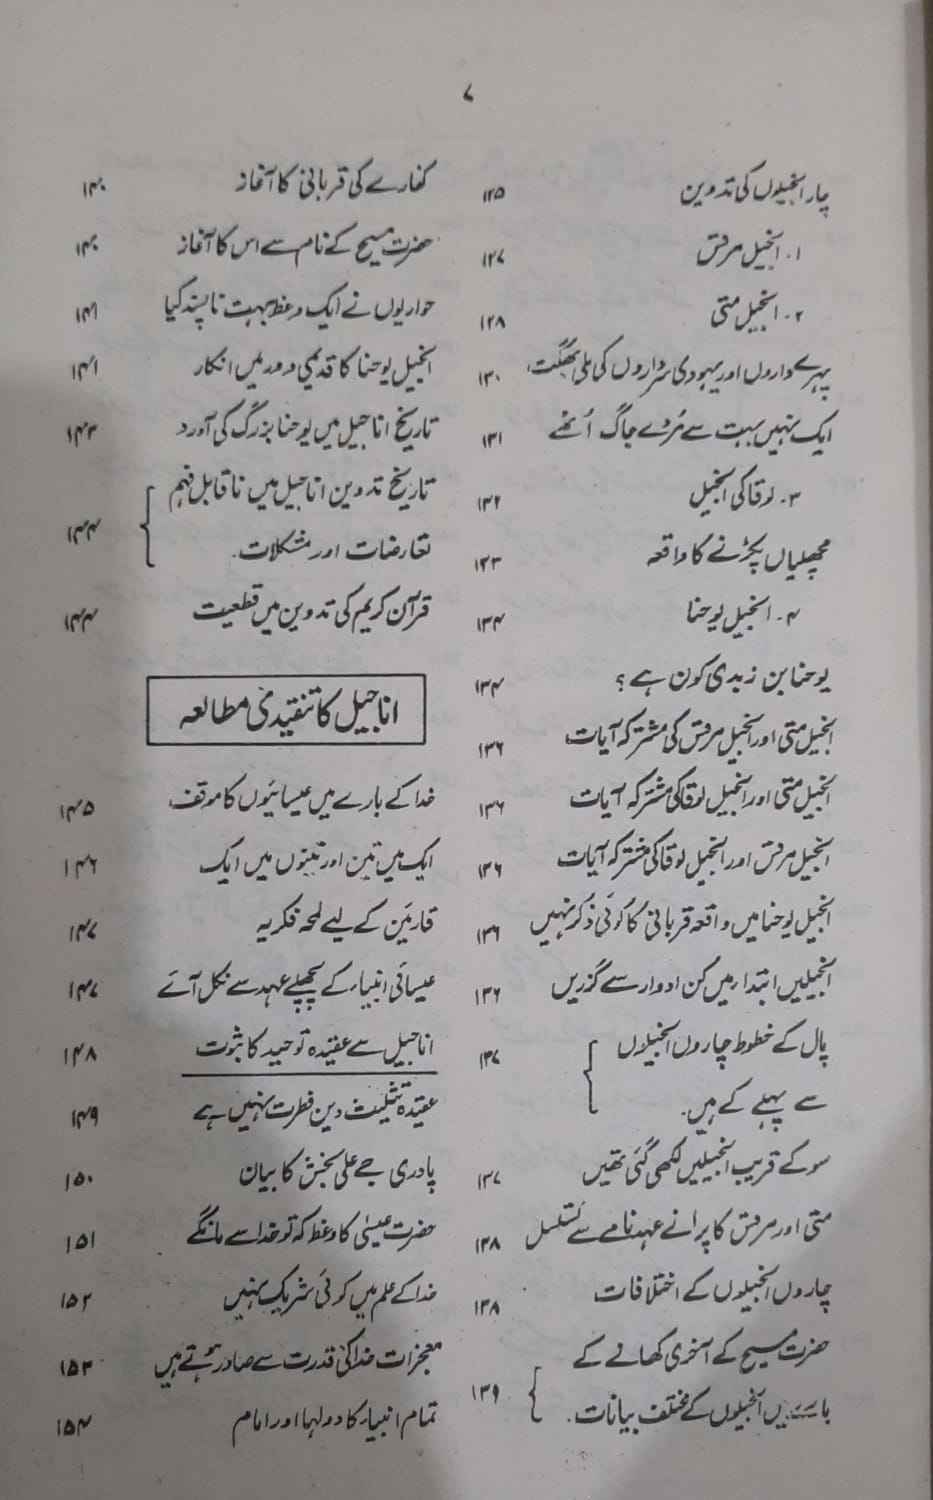 ۷
چار انجیلوں کی تدوین ۱۲۵
۱۔ انجیل مرقس ۱۲۷
۲۔ انجیل متی ۱۲۸
پہرے داروں اور یہودی سرداروں کی ملی بھگت ۱۳۰
ایک نہیں بہت سے مُردے جاگ اُٹھے ۱۳۱
۳۔ لوقا کی انجیل ۱۳۲
مچھلیاں پکڑنے کا واقعہ ۱۳۳
۴۔ انجیل یوحنا ۱۳۴
یوحنا بن زبدی کون ہے؟ ۱۳۴
انجیل متی اور انجیل مرقس کی مشترکہ آیات ۱۳۶
انجیل متی اور انجیل لوقا کی مشترکہ آیات ۱۳۶
انجیل مرقس اور انجیل لوقا کی مشترکہ آیات ۱۳۶
انجیل یوحنا میں واقعہ قربانی کا کوئی ذکر نہیں ۱۳۶
انجیلیں ابتدا میں کن ادوار سے گزریں ۱۳۶
پال کے خطوط چاروں انجیلوں ۱۳۷
سے پہلے کے ہیں۔
سو کے قریب انجیلیں لکھی گئی تھیں ۱۳۷
متی اور مرقس کا پرانے عہدنامے سے تسلسل ۱۳۸
چاروں انجیلوں کے اختلافات ۱۳۸
حضرت مسیح کے آخری کھانے کے
بارے میں انجیلوں کے مختلف بیانات۔ ۱۳۹
کفارے کی قربانی کا آغاز ۱۴۰
حضرت مسیح کے نام سے اس کا آغاز ۱۴۰
حواریوں نے ایک وعظ بہت ناپسند کیا ۱۴۱
انجیل یوحنا کا قدیمی دور میں انکار ۱۴۱
تاریخ اناجیل میں یوحنا بزرگ کی آورد ۱۴۳
تاریخ تدوین اناجیل میں ناقابل فہم
تعارضات اور مشکلات۔ ۱۴۴
قرآن کریم کی تدوین میں قطعیت ۱۴۴
اناجیل کا تنقیدی مطالعہ
خدا کے بارے میں عیسائیوں کا موقف ۱۴۵
ایک میں تین اور تینوں میں ایک ۱۴۶
قارئین کے لیے لمحہ فکریہ ۱۴۷
عیسائی انبیاء کے پچھلے عہد سے نکل آئے ۱۴۷
اناجیل سے عقیدہ توحید کا ثبوت ۱۴۸
عقیدہ تثلیث دین فطرت نہیں ہے ۱۴۹
پادری جے علی بخش کا بیان ۱۵۰
حضرت عیسیٰ کا وعظ کہ تو خدا سے مانگے ۱۵۱
خدا کے علم میں کوئی شریک نہیں ۱۵۲
معجزات خدا کی قدرت سے صادر ہوتے ہیں ۱۵۳
تمام انبیاء کا دولہا اور امام ۱۵۴